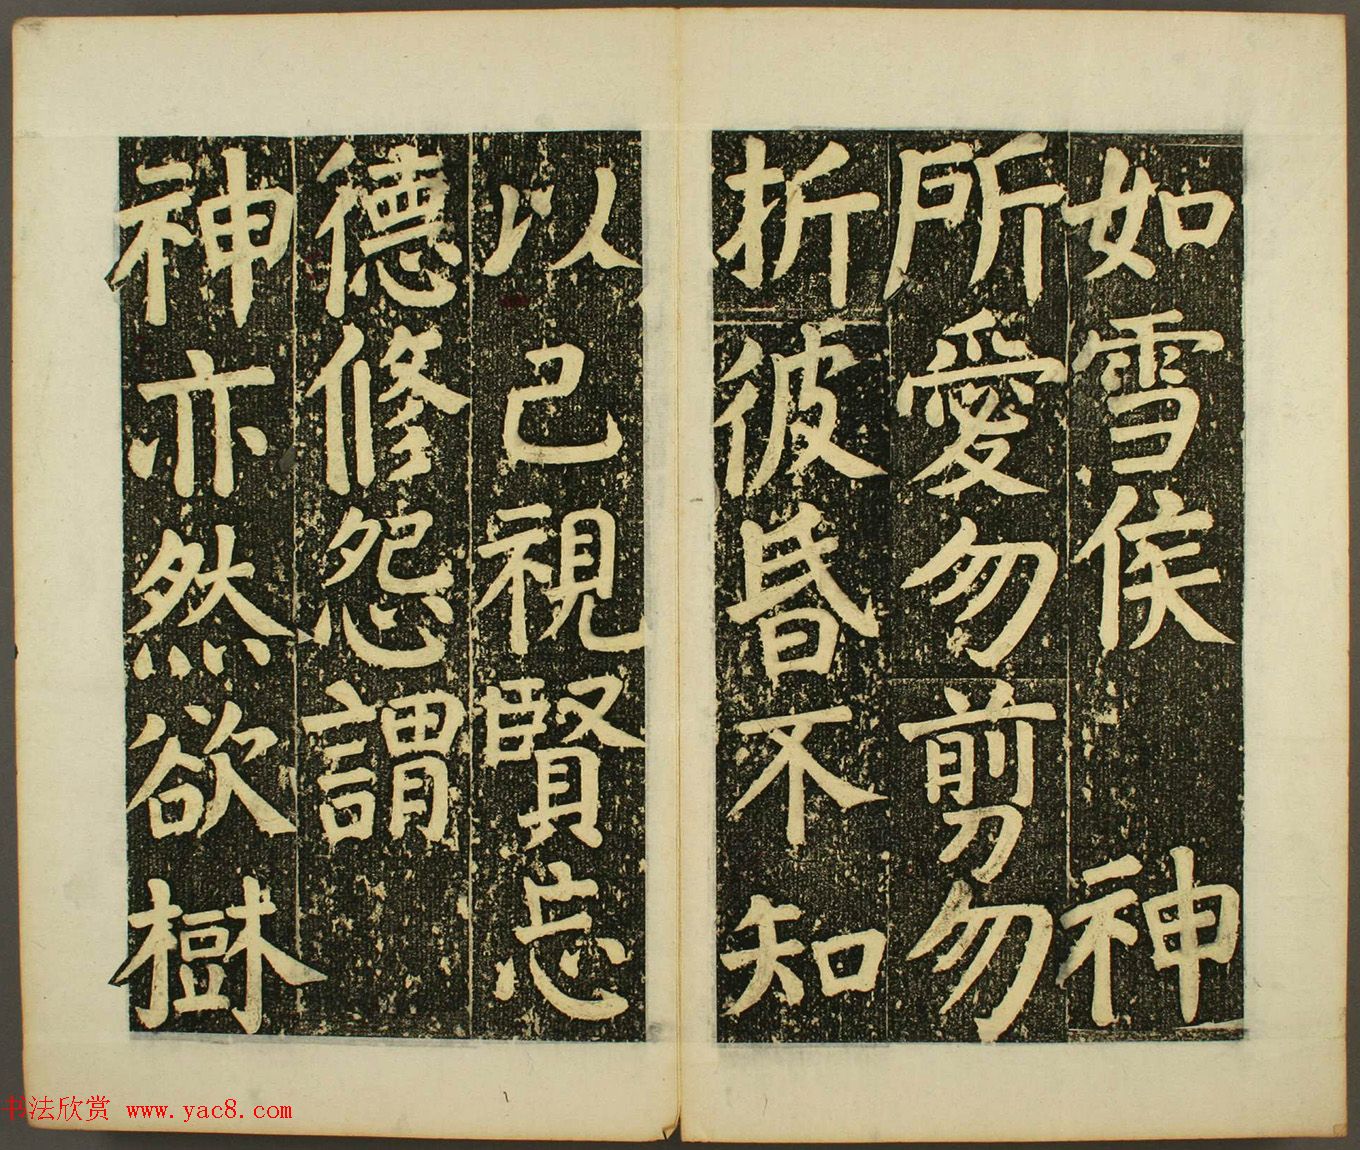 如雪俟神
所愛勿剪勿
折彼昏不知
以己視賢忘
德修怨謂
神亦然欲樹
书法欣赏 www.yac8.com